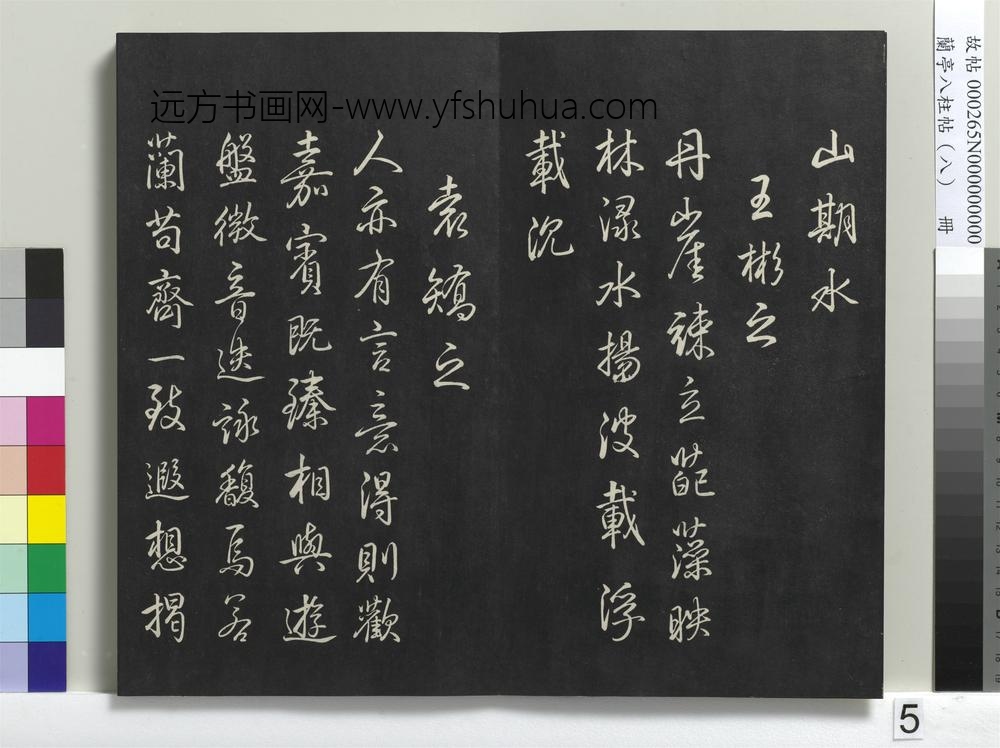 远方书画网-www.yfshuhua.com
山期水
王彬之
丹崖竦立葩藻映
林渌水揚波載浮
載沉
袁矯之
人亦有言意得則歡
嘉賓既臻相與遊
盤微音迭詠馥焉若
蘭苟齊一致遐想揭
故帖 000265N000000000
蘭亭八柱帖(八) 冊
5